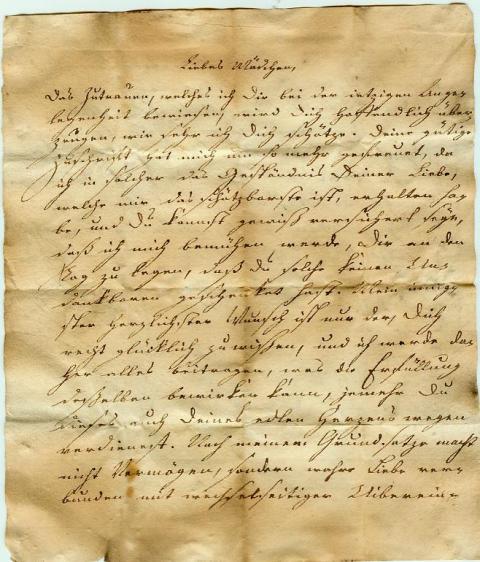 Liebes Mädchen,
Das Zutrauen, welches ich Dir bei der ietzigen Angele-
legenheit bewiesen, wird Dich hoffendlich über
zeugen, wie sehr ich Dich schätze. Deine gütige
Zuschrift hat mich um so mehr gefreuet, da
ich in solcher das Geständnis Deiner Liebe,
welche mir das schätzbarste ist, erhalten ha-
be, und Du kannst gewiß versichert seyn,
daß ich mich bemühen werde, Dir an den
Tag zu legen, daß Du solche keinen Un-
dankbaren geschenket hast. Mein innig-
ster herzlichster Wunsch ist nur der, Dich
recht glücklich zu wissen, und ich werde da-
her alles beitragen, was die Erfüllung
desselben bewirken kann, jemehr Du
dieses auch Deines edlen Herzens wegen
verdienest. Nach meinem Grundsatze macht
nicht Vermögen, sondern wahre Liebe ver-
bunden mit wechselseitiger Uiberein-